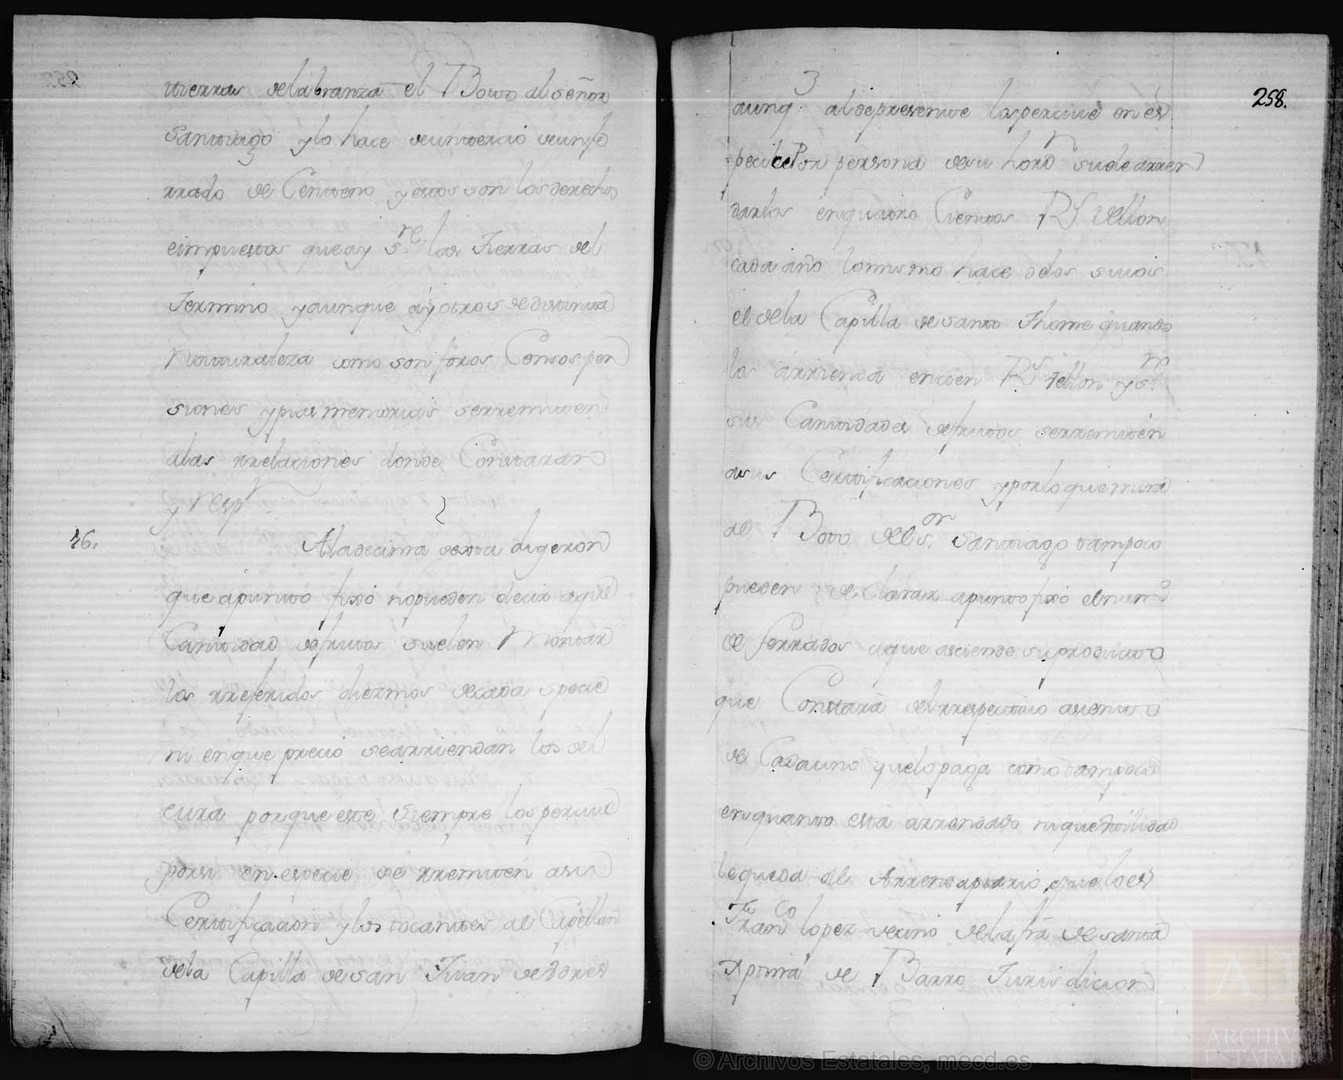 tierras de labranza el Boto al señor
Santiago y lo hace de un tercio de un fe
rrado de Centeno y estos son los derechos
e impuestos que ay sre las Tierras del
Termino y aunque ay otros de distinta
Naturaleza como son foros Censos pen
siones y pias memorias se rremiten
a las rrelaciones donde Constaran
y resp
16. A la decima sexta digeron
que a punto fixo no pueden decir a que
Cantidad de frutos suelen Montar
los rreferidos diezmos de cada specie
ni en que precio se arriendan los del
cura porque este siempre los percive
por si en especie se rremiten a su
Certificacion y los tocantes al Capellan
de la Capilla de San Juan de
258.
aunq. al de presente los percive en es
pecie Por persona de su horn suele arren
darlos en quatro Cientos Rs Vellon
cada año lo mismo hace de los suios
el de la Capilla de Santo Thome quando
los arrienda en cien Rs Vellon y sre
sus Cantidades de frutos se rremiten
a sus Certificaciones y por lo que mira
al Boto del sor Santiago tampoco
pueden de Clarar a punto fixo el numo
de ferrados a que asciende su producto
que Constará del rrespectivo asiento
de Cada uno que lo paga como tampoco
en quanto esta arrendado ni que utilidad
le queda al Arrendatario que lo es
Franco lopez vecino de la fra de Santa
Apinia de Barro Jurisdicion
© Archivos Estatales, mecd.es
ARCHIV
ESTATA